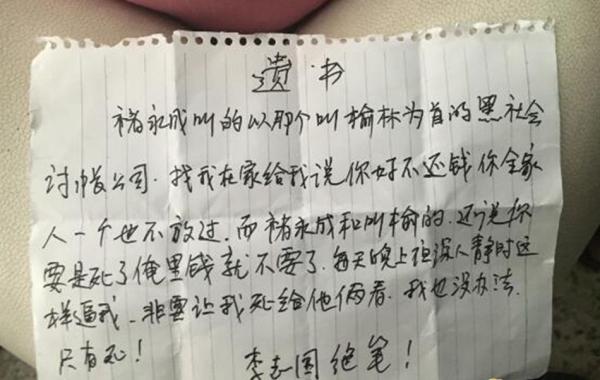 遗书
褚永成叫的以那个叫榆林为首的黑社会
讨债公司.找我在家给我说你好不还钱你全家
人一个也不放过.而褚永成和叫榆的.还说你
要是死了俺里钱就不要了.每天晚上但深人静时这
样逼我.非要让我死给他俩看.我也没办法.
只有死!
李志国绝笔!